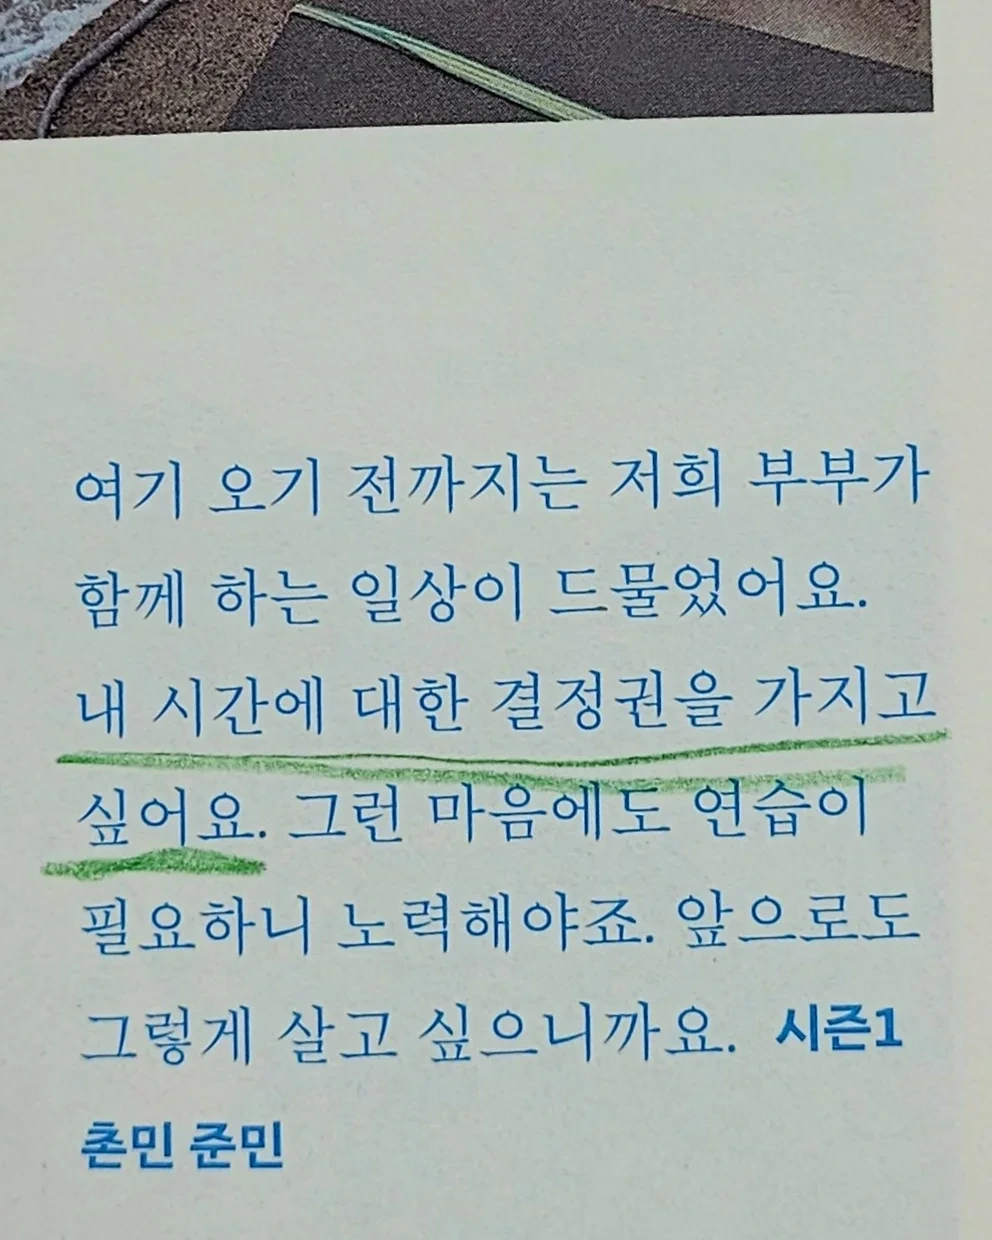 여기 오기 전까지는 저희 부부가
함께 하는 일상이 드물었어요.
내 시간에 대한 결정권을 가지고
싶어요. 그런 마음에도 연습이
필요하니 노력해야죠. 앞으로도
그렇게 살고 싶으니까요. 시즌1
촌민 준민